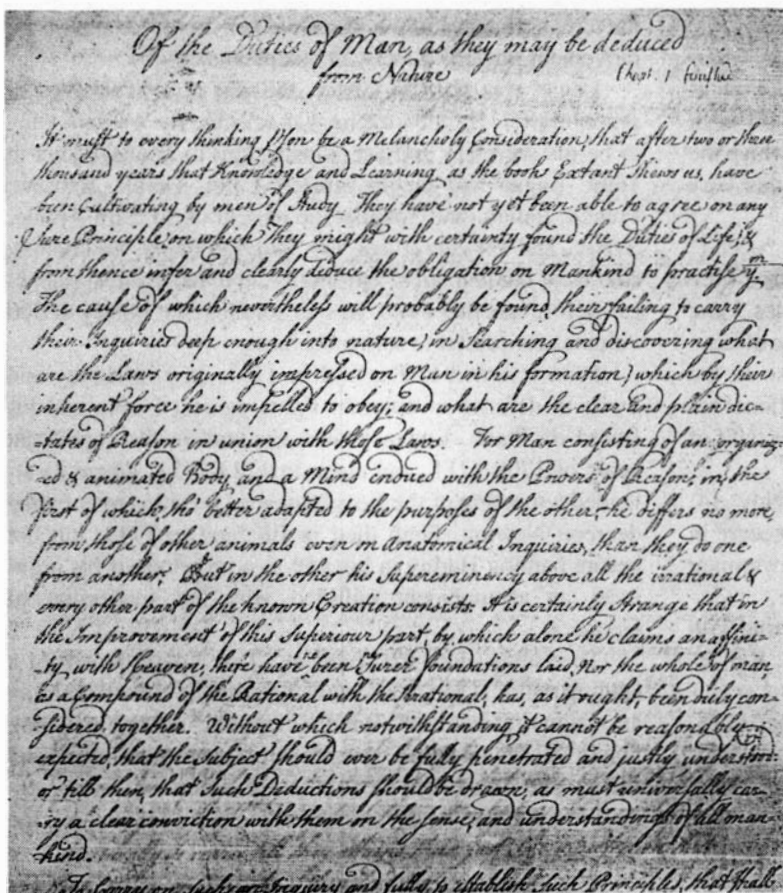 Of the Duties of Man, as they may be deduced
from Nature
Chapt. 1 finished
It must to every thinking P'son be a Melancholy Consideration, that after two or three
thousand years that Knowledge and Learning, as the books Extant Shews us, have
been Cultivating by men of Study They have not yet been able to agree on any
Sure Principle, on which They might with certainty found the Duties of Life, &
from thence infer and clearly deduce the obligation on Mankind to practise ym
The cause of which nevertheless will probably be found their failing to carry
their Inquiries deep enough into nature, in Searching and discovering what
are the Laws originally impressed on Man in his formation, which by their
inherent force he is impelled to obey; and what are the clear and plain dic-
-tates of Reason in union with those Laws. For Man consisting of an organiz-
-ed & animated Body, and a Mind endued with the Powers of Reason, in the
first of which, tho' better adapted to the purposes of the other, he differs no more
from those of other animals even in Anatomical Inquiries, than they do one
from another. But in the other his Supereminency above all the irrational &
every other part of the known Creation consists: It is certainly strange that in
the Improvement of this superiour part, by which alone he claims an affini-
-ty with Heaven, there have been Surer foundations laid, Nor the whole of man,
as a Compound of the Rational with the Irrational, has, as it ought, been duly con-
-sidered together. Without which notwithstanding it cannot be reasonably
expected, that the Subject should ever be fully penetrated and justly understood:
or till then, that such Deductions should be drawn, as must universally car-
-ry a clear conviction with them on the sense, and understanding of all man-
-kind.
To carry on such an Inquiry and fully to establish such Principles that shall